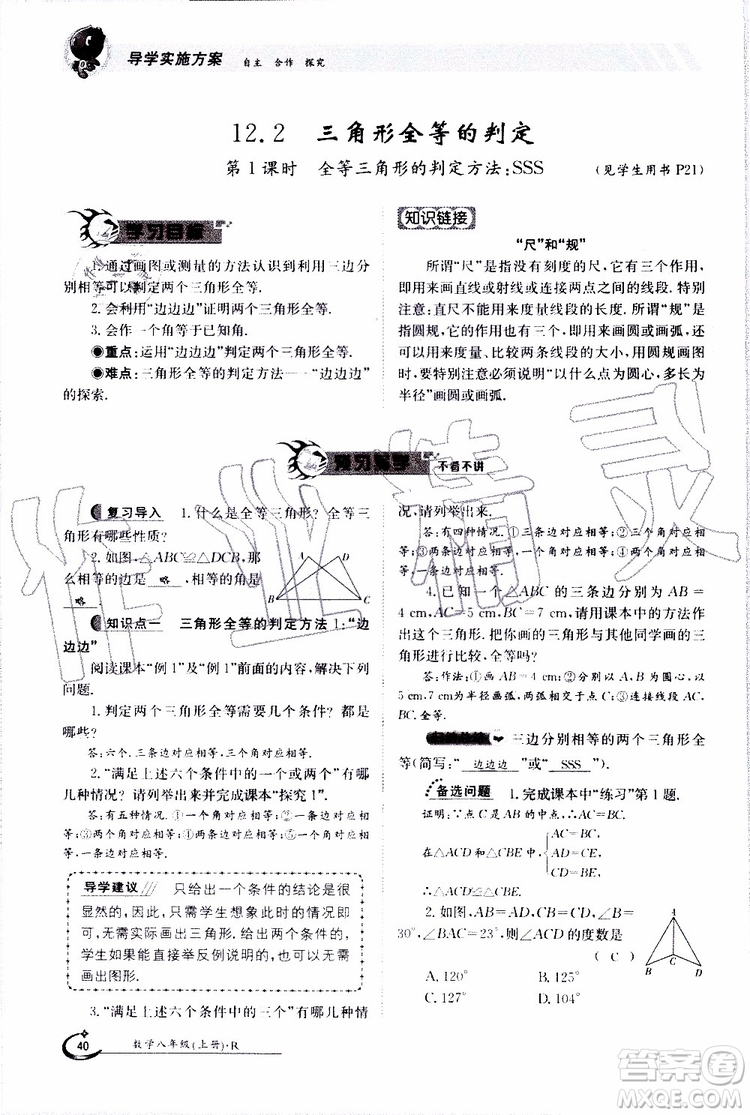 导学实施方案 自主 合作 探究
12.2 三角形全等的判定
第1课时 全等三角形的判定方法:SSS (见学生用书 P21)
学习目标
1.通过画图或测量的方法认识到三边分
别相等可以判定两个三角形全等.
2. 会利用“边边边”证明两个三角形全等.
3. 会作一个角等于已知角.
◉重点:运用“边边边”判定两个三角形全等.
◉难点:三角形全等的判定方法——“边边边”
的探索.
知识链接
“尺”和“规”
所谓“尺”是指没有刻度的尺,它有三个作用,
即用来画直线或射线或连接两点之间的线段. 特别
注意:直尺不能用来度量线段的长度. 所谓“规”是
指圆规,它的作用也有三个,即用来画圆或画弧,可
以用来度量、比较两条线段的大小,用圆规画图时,
要特别注意必须说明“以什么点为圆心,以多长为
半径”画圆或画弧.
预习导学 不看不讲
复习导入 1.什么是全等三角形? 全等三
角形有哪些性质?
2. 如图,△ABC≌△DCB,那
么相等的边是 略 ,相等的角是
略 .
A D
B C
知识点一 三角形全等的判定方法 1:“边
边边”
阅读课本“例 1”及“例 1”前面的内容,解决下列
问题.
1.判定两个三角形全等需要几个条件? 都是
哪些?
答:六个.三条边对应相等,三个角对应相等.
2.“满足上述六个条件中的一个或两个”有哪
几种情况? 请列举出来并完成课本“探究 1”.
答:有五种情况:①一条边对应相等;②一个角对应相
等;③两个角对应相等;④两条边对应相等;⑤一条边和
一个角对应相等.
导学建议 只给出一个条件的结论是很
显然的,因此,只需学生想象此时的情况即可,
无需实际画出三角形. 给出两个条件的情况,
学生如果能直接举反例说明的,也可以无需
画出图形.
3.“满足上述六个条件中的三个”有哪几种情
况,请列举出来.
答:有四种情况:①三条边对应相等;②三个角对应相
等;③两边一角对应相等;④两角一边对应相等.
4. 已知一个三角形的三条边分别为 AB=
4 cm,AC=5 cm,BC=7 cm,请用课本中的方法作
出这个三角形. 把你画的三角形与其他同学画的三
角形进行比较,全等吗?
答:作法:①画 AB=4 cm;②分别以 A、B 为圆心,以
5 cm,7 cm为半径画弧,两弧相交于点C;③连接线段AC,
BC. 全等.
归纳总结 三边分别相等的两个三角形全
等(简写:“ 边边边 ”或“ SSS ”).
备选问题 1.完成课本中“练习”第 1 题.
证明:∵点 C 是 AB 的中点,∴AC=BC.
在△ACD 和△CBE 中, { AC=BC,
AD=CE,
CD=BE,
∴△ACD≌△CBE.
2. 如图,AB=AD,CB=CD,∠B=
30°,∠BAC=23°,则∠ACD的度数是
( C )
A. 120° B. 125°
C. 127° D. 104°
A
B C D
40 数学八年级(上册)·R
作业精灵
答案圈
MXQE.COM